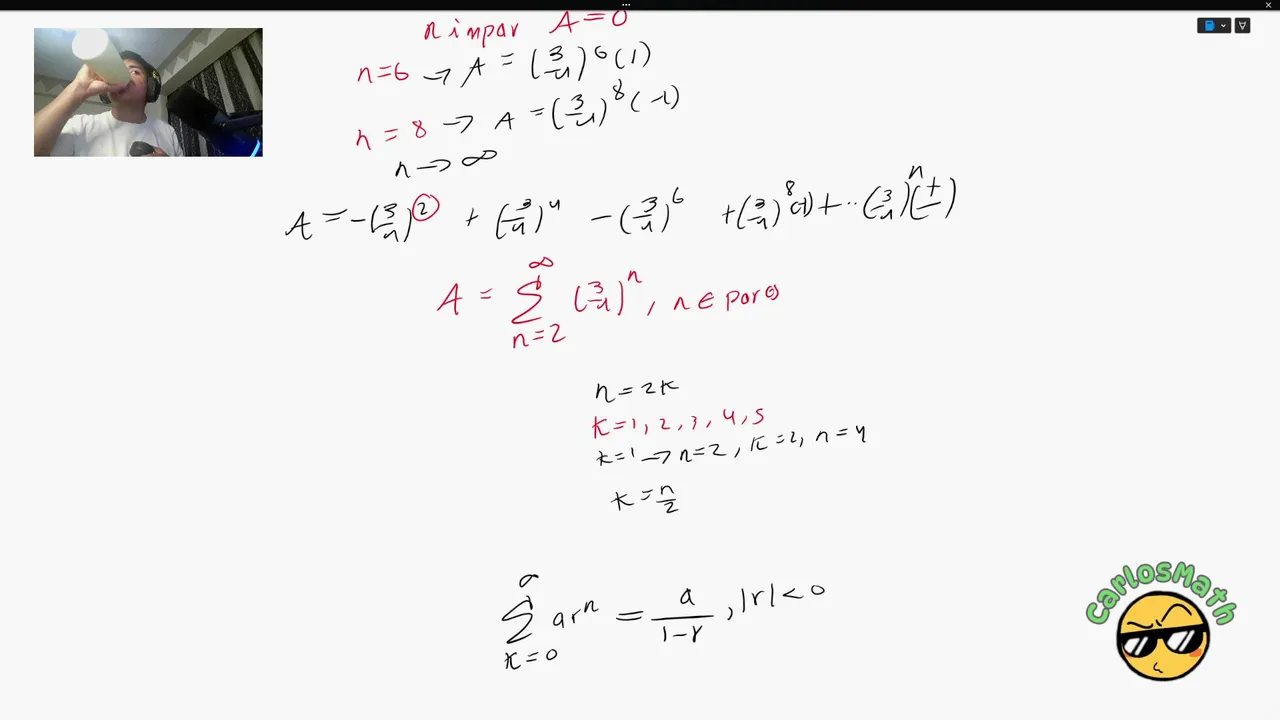 n impar A = 0
n=6 → A = (3/4)^6 (1)
n = 8 → A = (3/4)^8 (-1)
n → ∞
A = -(3/4)^2 + (3/4)^4 - (3/4)^6 + (3/4)^8 (-1) + ·· (3/4)^n (±)
A = ∑_{n=2}^{∞} (3/4)^n, n ∈ pares
n = 2k
k=1, 2, 3, 4, 5
k=1 → n=2, k=2, n=4
k = n/2
∑_{k=0} ar^n = a/(1-r), |r| < 0
CarlosMath